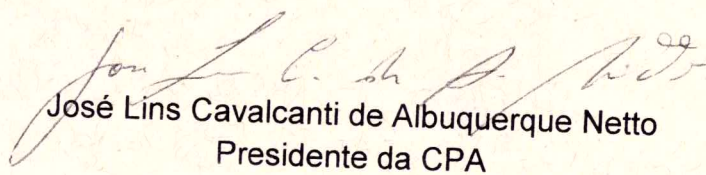 José Lins Cavalcanti de Albuquerque Netto
Presidente da CPA